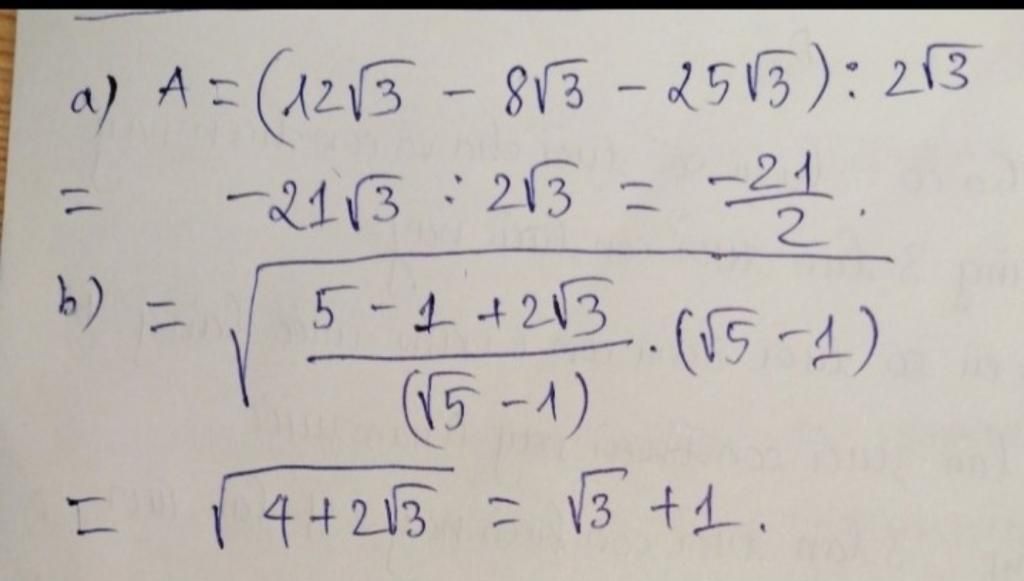 a) A = (12√3 - 8√3 - 25√3) : 2√3
= -21√3 : 2√3 = -21/2.
b) = √((5 - 1 + 2√3)/(√5 - 1) . (√5 - 1))
= √(4 + 2√3) = √3 + 1.